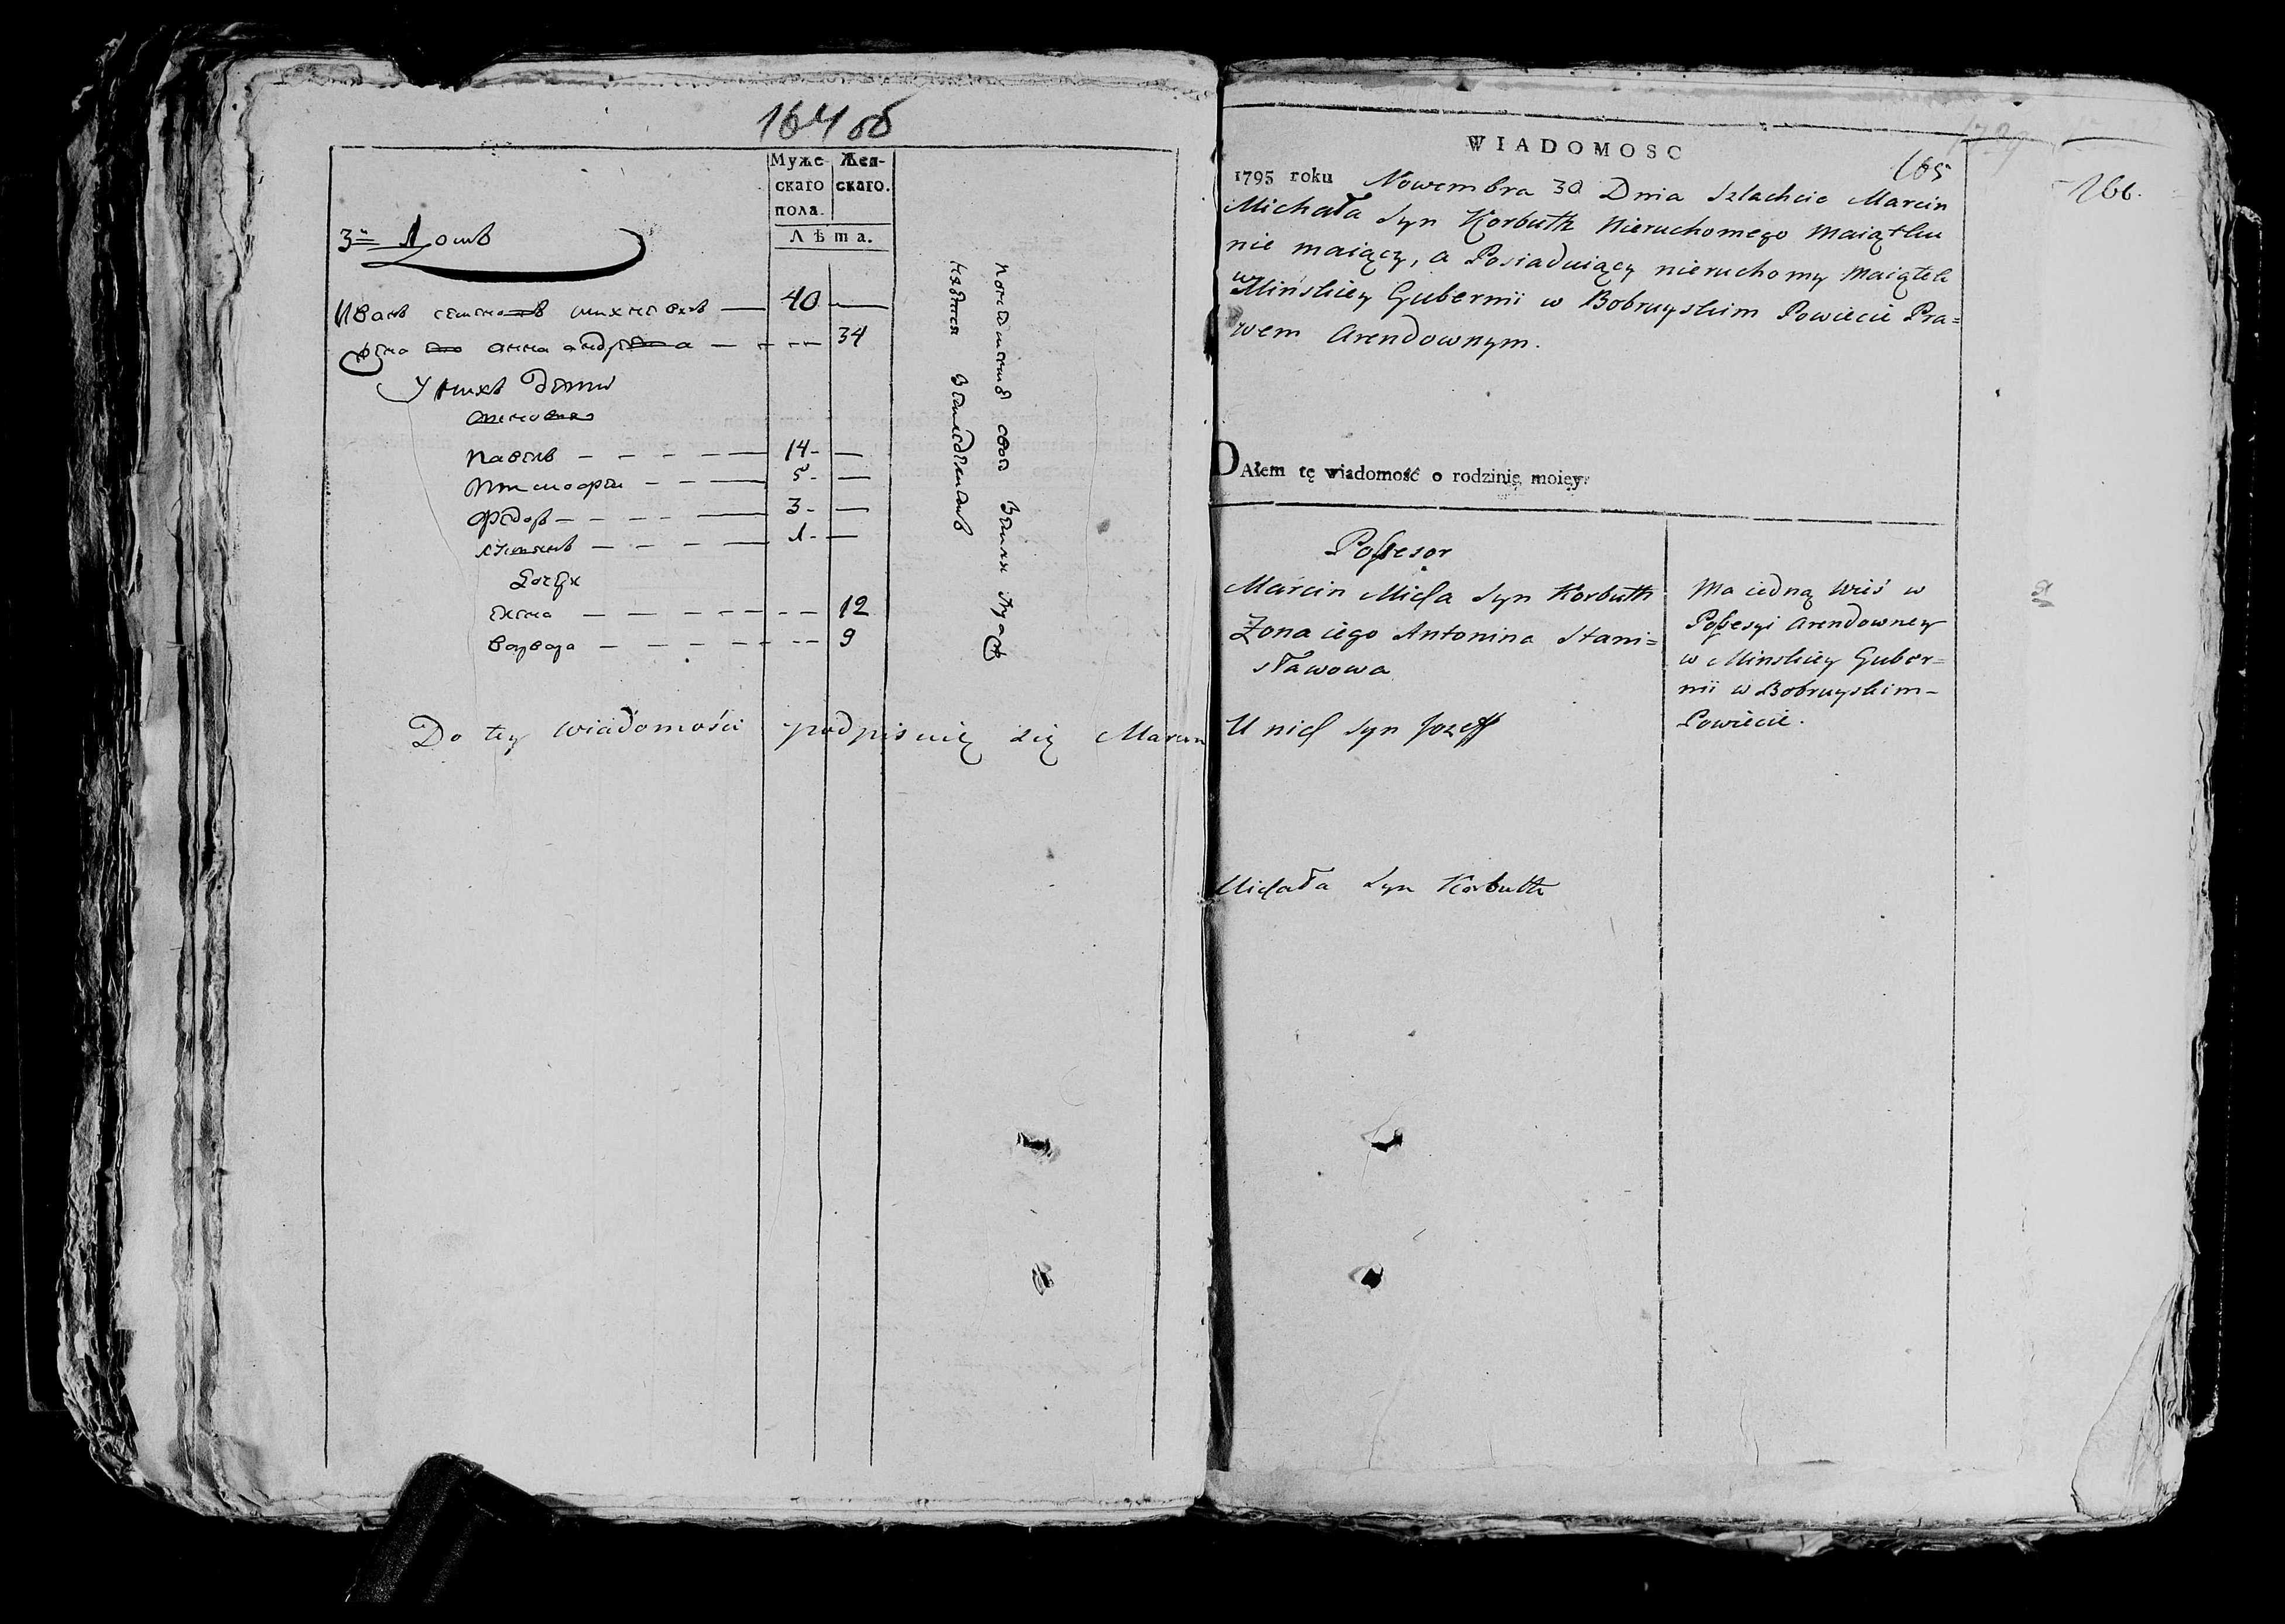 164 об
Муже
скаго
пола.
Жен-
скаго.
Лѣта.
3е Домъ
Иванъ михневичъ — 40 —
жена анна андреева — 34
У нихъ дети
Павелъ — 14 —
Тимофей — 5 —
Федоръ — 3 —
1 —
Дочери
елена — 12
варвара — 9
Do tey wiadomości podpisuię się Marcin
WIADOMOSC
165
166.
1795 roku Nowembra 30 Dnia Szlachcic Marcin
Michała Syn Korbuth Nieruchomego Maiątku
nie maiący, a Posiaduiący nieruchomy Maiątek
w Mińskiey Gubernii w Bobruyskim Powiecie Pra=
wem Arendownym.
DAłem tę wiadomość o rodzinie moiey.
Possesor
Marcin Micha Syn Korbuth
Żona iego Antonina Stani=
sławowa
U nich Syn Jozeff
Ma iedną Wieś w
Possesyi Arendowney
w Minskiey Guber=
nii w Bobruyskim-
Powiecie.
Michała Syn Korbuth